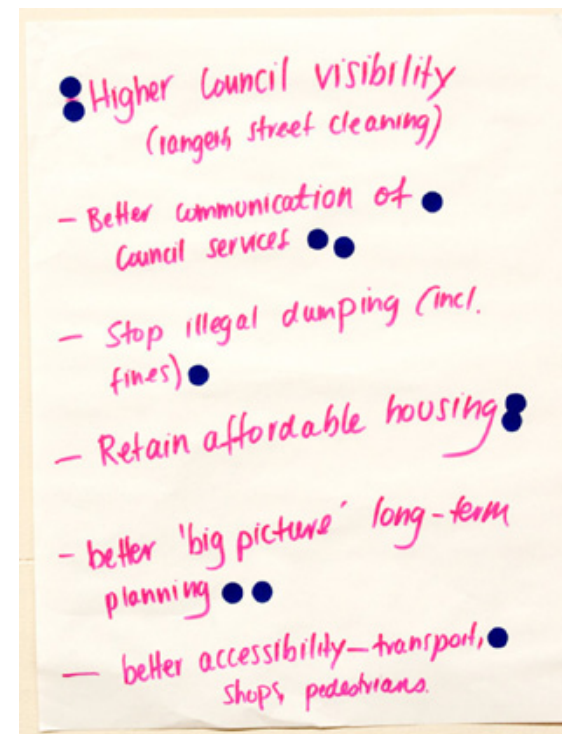 Higher Council visibility
(rangers, street cleaning)
- Better communication of
Council services
- Stop illegal dumping (incl.
fines)
- Retain affordable housing
- better 'big picture' long-term
planning
- better accessibility - transport,
shops, pedestrians.